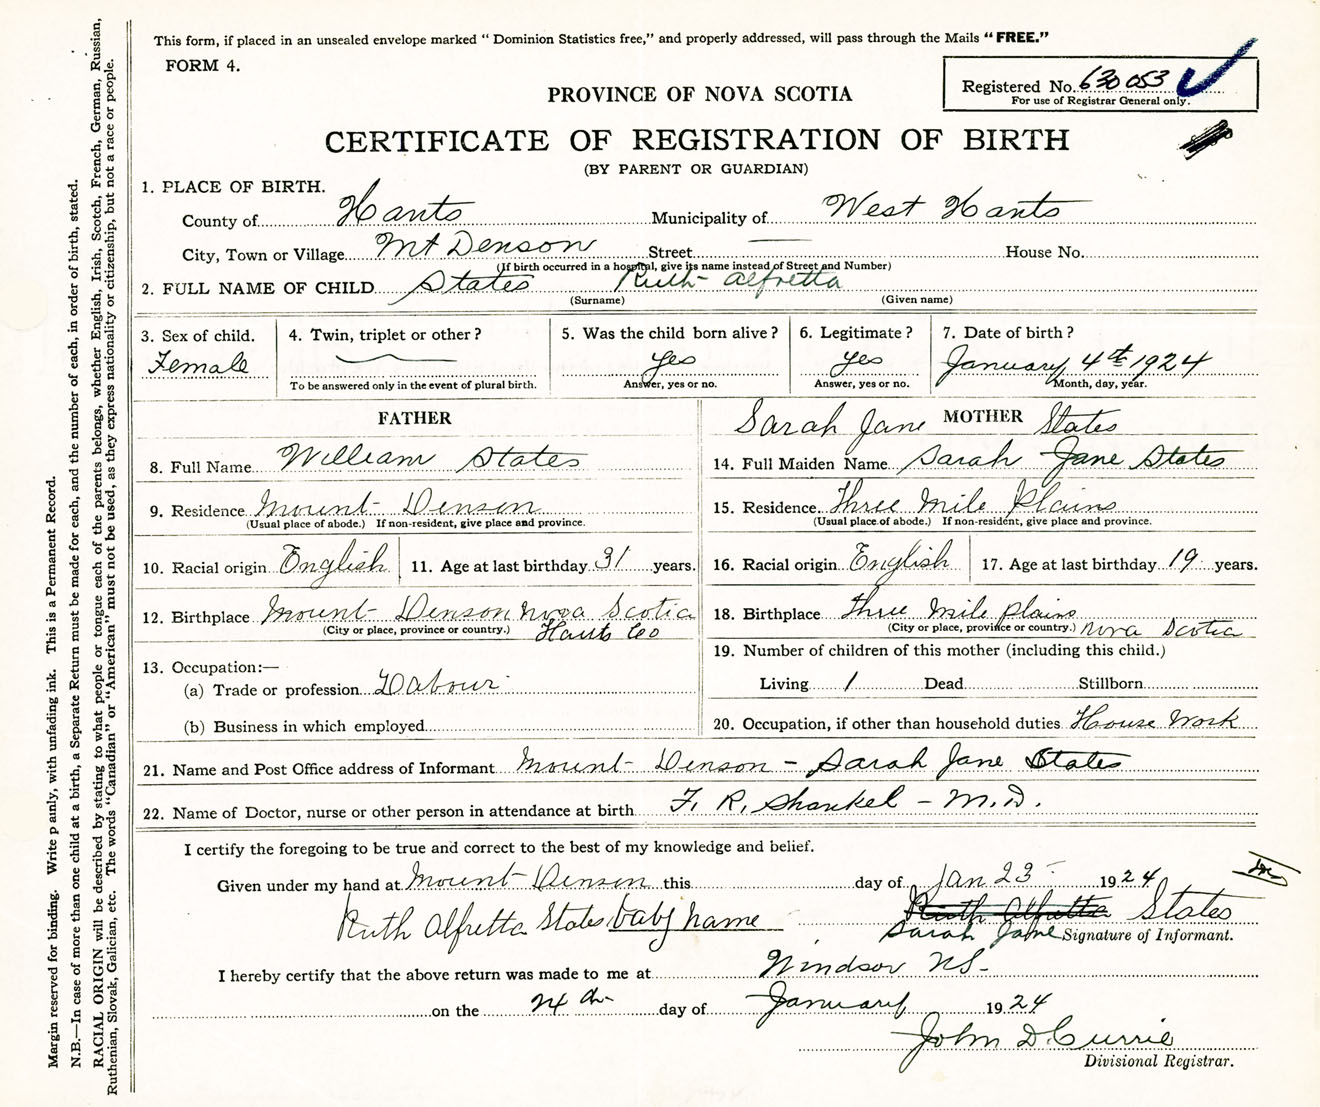 This form, if placed in an unsealed envelope marked “ Dominion Statistics free,” and properly addressed, will pass through the Mails “FREE.”
FORM 4.
Registered No. 630 053
For use of Registrar General only.
PROVINCE OF NOVA SCOTIA
CERTIFICATE OF REGISTRATION OF BIRTH
(BY PARENT OR GUARDIAN)
1. PLACE OF BIRTH.
County of Hants Municipality of West Hants
City, Town or Village Mt Denson Street House No.
(If birth occurred in a hospital, give its name instead of Street and Number)
2. FULL NAME OF CHILD States Ruth Alfretta
(Surname) (Given name)
3. Sex of child. 4. Twin, triplet or other ? 5. Was the child born alive ? 6. Legitimate ? 7. Date of birth ?
Female yes yes January 4th 1924
To be answered only in the event of plural birth. Answer, yes or no. Answer, yes or no. Month, day, year.
FATHER Sarah Jane MOTHER States
8. Full Name William States 14. Full Maiden Name Sarah Jane States
9. Residence Mount Denson 15. Residence. Three Mile Plains
(Usual place of abode.) If non-resident, give place and province. (Usual place of abode.) If non-resident, give place and province.
10. Racial origin English 11. Age at last birthday 31 years. 16. Racial origin English 17. Age at last birthday 19 years.
12. Birthplace Mount Denson Nova Scotia 18. Birthplace Three Mile plains
(City or place, province or country.) Hants Co (City or place, province or country.) Nova Scotia
13. Occupation:— 19. Number of children of this mother (including this child.)
(a) Trade or profession Labour Living 1 Dead Stillborn
(b) Business in which employed 20. Occupation, if other than household duties House Work
21. Name and Post Office address of Informant Mount Denson - Sarah Jane States
22. Name of Doctor, nurse or other person in attendance at birth F. R. Shankel - M.D.
I certify the foregoing to be true and correct to the best of my knowledge and belief.
Given under my hand at Mount Denson this day of Jan 23 1924
Ruth Alfretta States baby name Ruth Alfretta States
Sarah Jane Signature of Informant.
I hereby certify that the above return was made to me at Windsor N.S.
on the 24th day of January 1924
John D. Currie
Divisional Registrar.
Margin reserved for binding. Write p ainly, with unfading ink. This is a Permanent Record.
N.B.—In case of more than one child at a birth, a Separate Return must be made for each, and the number of each, in order of birth, stated.
RACIAL ORIGIN will be described by stating to what people or tongue each of the parents belongs, whether English, Irish, Scotch, French, German, Russian,
Ruthenian, Slovak, Galician, etc. The words “Canadian” or “American” must not be used, as they express nationality or citizenship, but not a race or people.